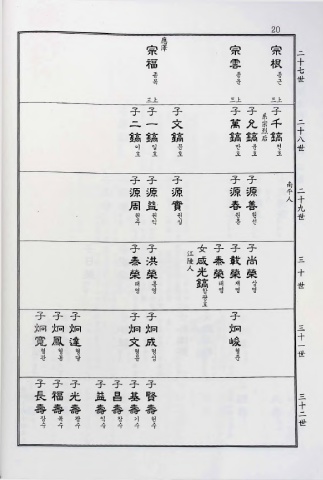 20
二十七世
宗根 종근
宗雲 종운
應澤
宗福 종복
二十八世
子千鎬 천호
系宗烈后
子允鎬 윤호
子萬鎬 만호
子文鎬 문호
子一鎬 일호
子二鎬 이호
二十九世
南平人
子源善 원선
子源春 원춘
子源實 원실
子源益 원익
子源周 원주
三十世
子尚榮 상영
子載榮 재영
子泰榮 태영
女咸光鎬 함광호
江陵人
子洪榮 홍영
子泰榮 태영
三十一世
子炯峻 형준
子炯成 형성
子炯文 형문
子炯達 형달
子炯鳳 형봉
子炯寬 형관
三十二世
子賢壽 현수
子基壽 기수
子昌壽 창수
子益壽 익수
子光壽 광수
子福壽 복수
子長壽 장수